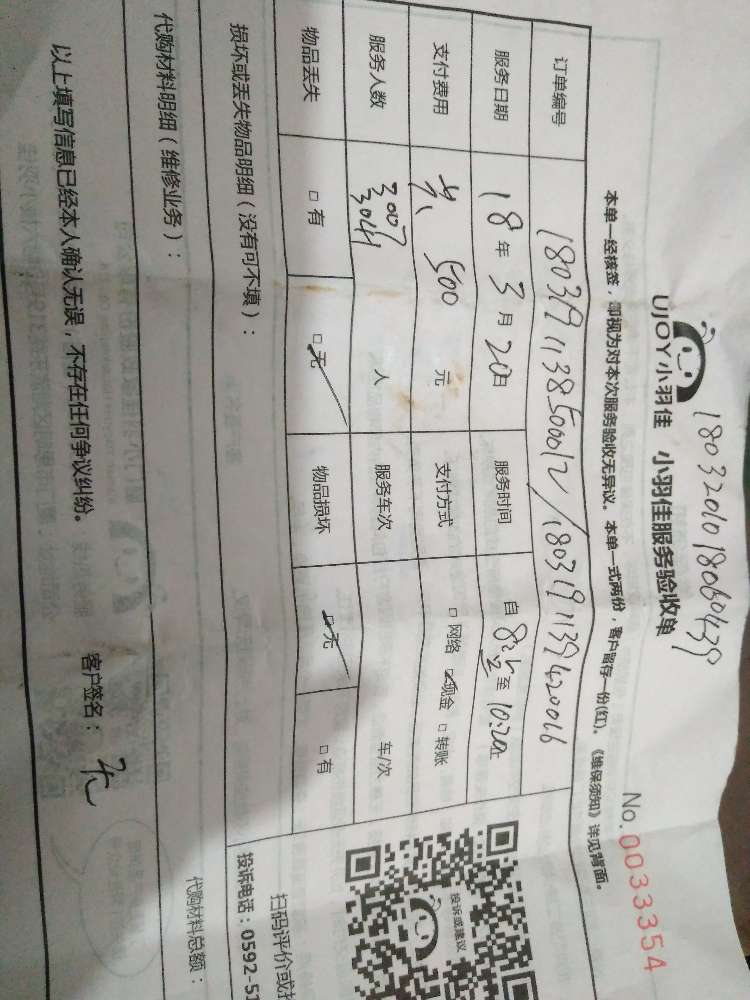 1803201018060439
UJOY小羽佳 小羽佳服务验收单
No.0033354
本单一经核签，即视为对本次服务验收无异议。本单一式两份，客户留存一份(红)。《维保须知》详见背面。
订单编号 1803191138500012/180319113942 0066
服务日期 18年3月20日 服务时间 自 至 10:20止
支付费用 共 500 元 支付方式 □网络 □现金 □转账
服务人数 3007 3041 人 服务车次 车/次
物品丢失 □有 □无 物品损坏 □无 □有
损坏或丢失物品明细（没有可不填）：
代购材料明细（维修业务）： 代购材料总额：
以上填写信息已经本人确认无误，不存在任何争议纠纷。 客户签名：
投诉或建议
扫码评价或
投诉电话：0592-51